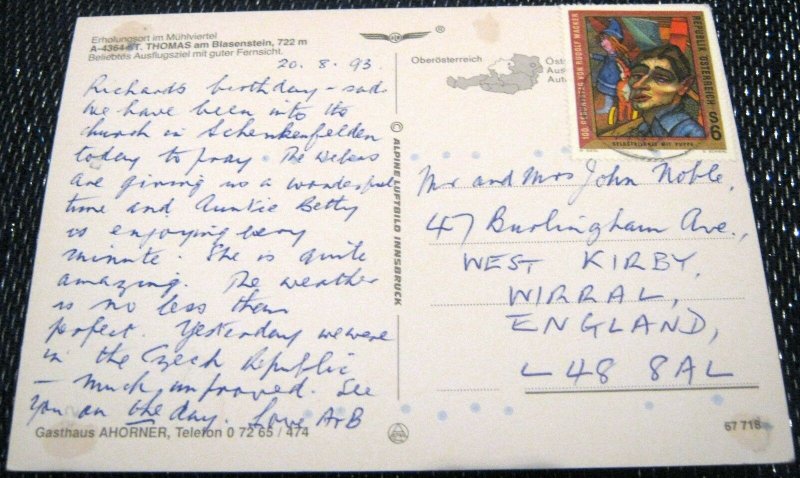 Erholungsort im Mühlviertel
A-4364 ST. THOMAS am Blasenstein, 722 m
Beliebtes Ausflugsziel mit guter Fernsicht.
20.8.93.
Richards birthday - sad.
We have been into the
church in Schenkenfelden
today to pray. The Webers
are giving us a wonderful
time and Auntie Betty
is enjoying every
minute. She is quite
amazing. The weather
is no less than
perfect. Yesterday we were
in the Czech Republic
- much improved. See
you on the day. Love A+B
Gasthaus AHORNER, Telefon 0 72 65 / 474
© ALPINE LUFTBILD INNSBRUCK
Oberösterreich
Öst
Aus
Aut
100. GEBURTSTAG VON RUDOLF WACKER
REPUBLIK ÖSTERREICH
S 6
SELBSTBILDNIS MIT PUPPE
Mr and Mrs John Noble,
47 Burlingham Ave.,
WEST KIRBY,
WIRRAL,
ENGLAND,
L48 8AL
67 718